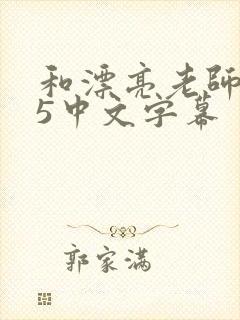 和漂亮老師
5中文字幕
郭家滿